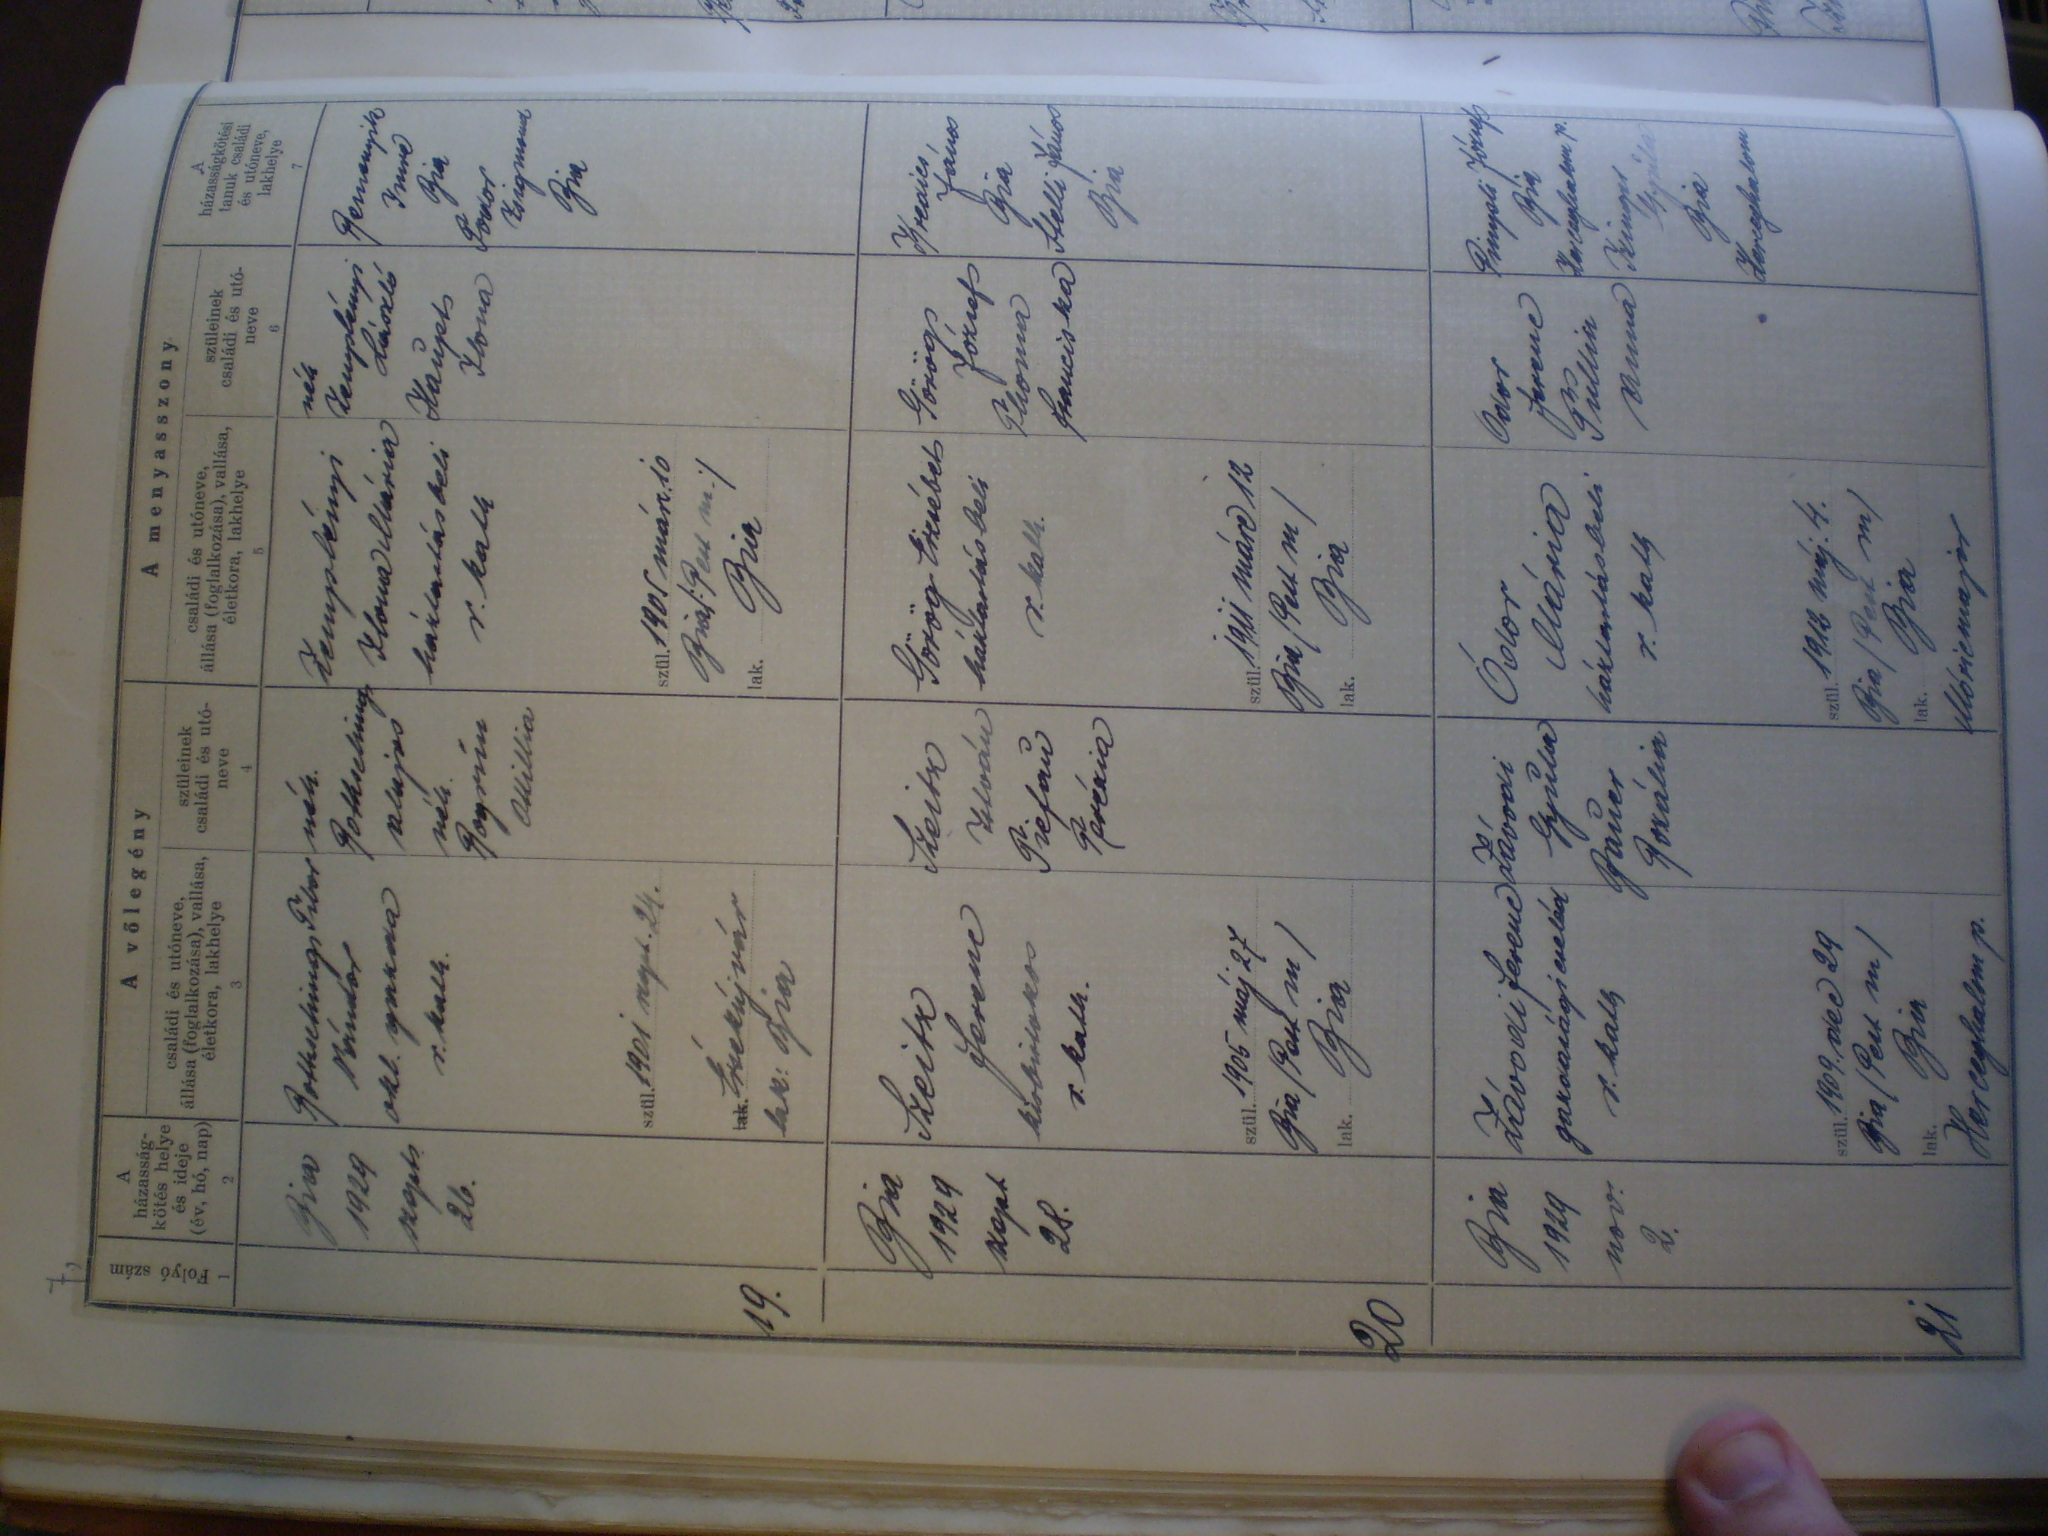 7,
Folyó szám
1
A házasság-
kötés helye
és ideje
(év, hó, nap)
2
A vőlegény
családi és utóneve,
állása (foglalkozása), vallása,
életkora, lakhelye
3
szüleinek
családi és utó-
neve
4
A menyasszony
családi és utóneve,
állása (foglalkozása), vallása,
életkora, lakhelye
5
szüleinek
családi és utó-
neve
6
A
házasságkötési
tanuk családi
és utóneve,
lakhelye
7
19.
Bia
1929
szept.
26.
Tibor
Nándor
okl.
r. kath.
szül. 1901 szept. 24.
lak. Érsekújvár
lak: Bia
néh.
Alajos
néh.
Ottilia
Zemplényi
Ilona Mária
háztartásbeli
r. kath
szül. 1905 már. 10
Bia /: Pest m. /
lak. Bia
néh
Zemplényi
László
Ilona
Imre
Bia
Fodor
Zsigmond
Bia
20
Bia
1929
szept
28.
Szeitz
Ferenc
r. kath.
szül. 1905 máj 27
Bia / Pest m /
lak. Bia
Szeitz
István
Görög Erzsébet
háztartásbeli
r. kath.
szül. 1911 márc 12
Bia / Pest m /
lak. Bia
Görög
József
Thoma
Franciska
János
Bia
Stelli János
Bia
21
Bia
1929
nov.
2.
Závodi Ferenc
gazdasági cseléd
r. kath
szül. 1909. dec 29
Bia / Pest m /
lak. Bia
Herceghalm p.
Závodi
Gyula
Bauer
Rozália
Ódor
Mária
háztartásbeli
r. kath
szül. 1912 máj. 4.
Bia / Pest m /
lak. Bia
Móricmajor
Ódor
Ferenc
Anna
József
Bia
Herceghalm p.
Gyula
Bia
Herceghalom